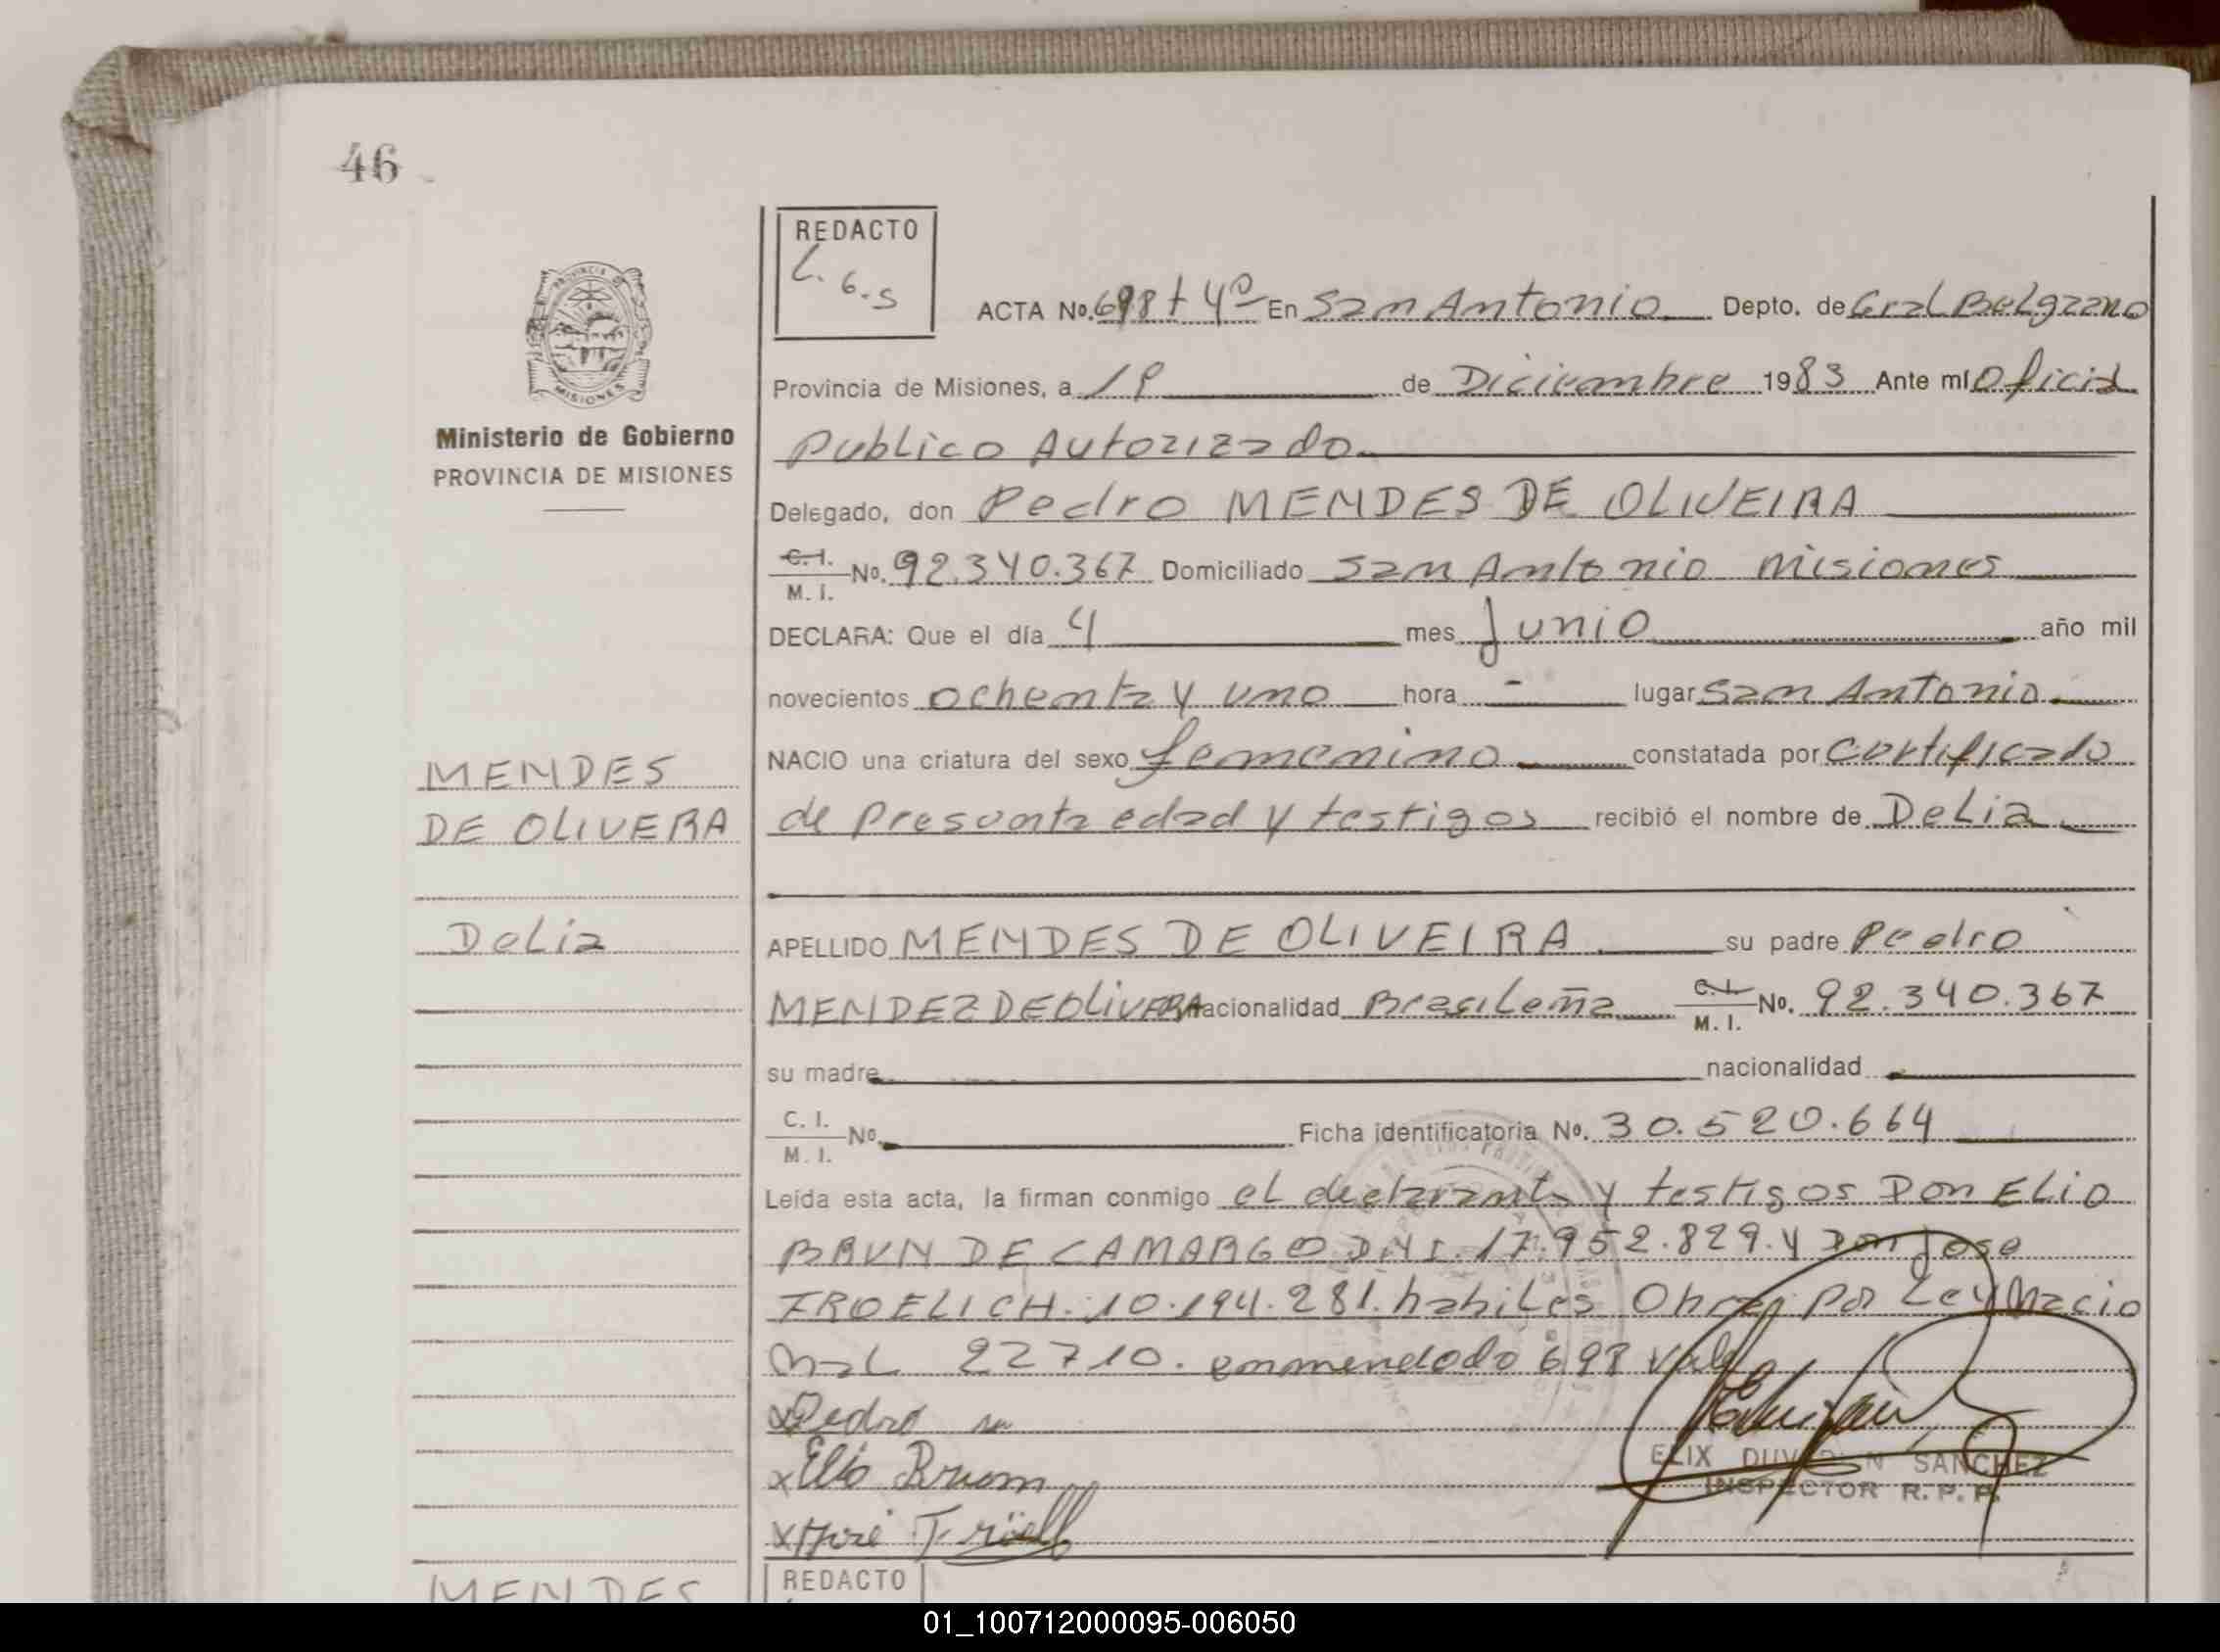 46
REDACTO
L. G. S
ACTA No. 698 t 4º En San Antonio Depto. de Gral Belgrano
Provincia de Misiones, a 19 de Diciembre 1983 Ante mí Oficial
Publico Autorizado
Ministerio de Gobierno
PROVINCIA DE MISIONES
Delegado, don Pedro MENDES DE OLIVEIRA
C.I. M. I. No. 92.340.367 Domiciliado San Antonio Misiones
DECLARA: Que el día 4 mes Junio año mil
novecientos ochenta y uno hora - lugar San Antonio
NACIO una criatura del sexo femenino constatada por Certificado
de Presunta edad y testigos recibió el nombre de Delia
MENDES
DE OLIVERA
Delia
APELLIDO MENDES DE OLIVEIRA su padre Pedro
MENDEZ DE OLIVERA nacionalidad Brasileña C.I. M. I. No. 92.340.367
su madre nacionalidad
C. I. M. I. No. Ficha identificatoria No. 30.520.664
Leída esta acta, la firman conmigo el declarante y testigos Don ELio
BRUN DE CAMARGO DNI. 17.952.829. y Don Jose
FROELICH. 10.194.281. habiles Obran por Ley Nacio
nal 22710. enmendado 698 vale
x Pedro
x Elio Brum
x José
ELIX SANCHEZ
INSPECTOR R. P. P.
REDACTO
MENDES
01_100712000095-006050